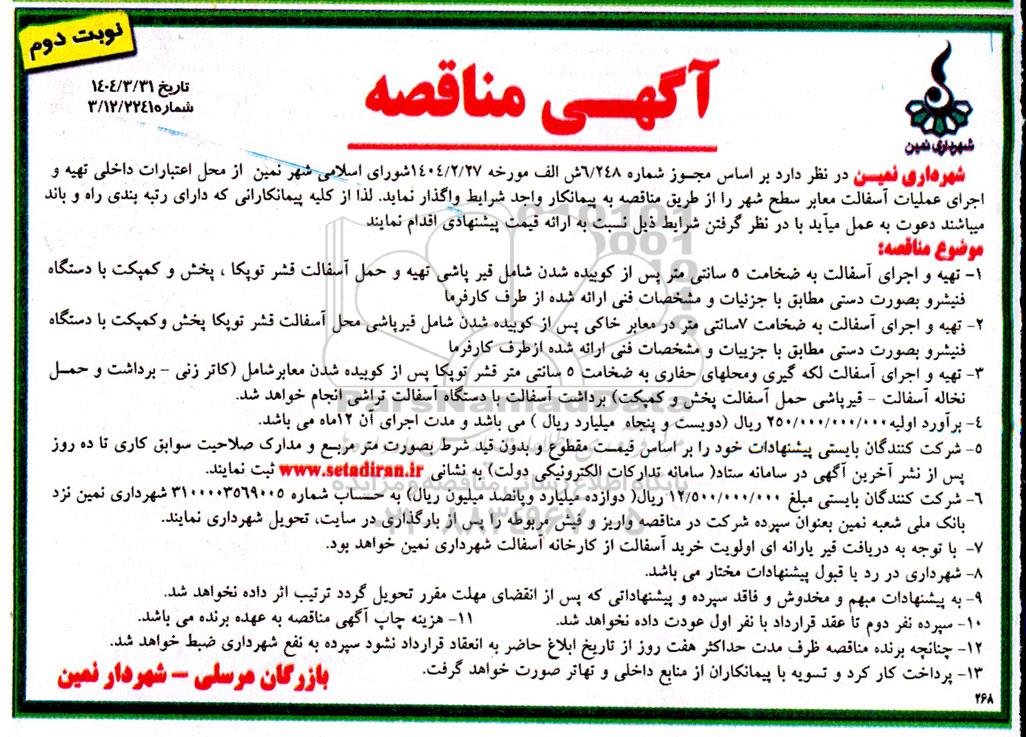 نوبت دوم
شهرداری نمین
آگهی مناقصه
تاریخ ۱۴۰۴/۳/۳۱
شماره ۳/۱۲/۲۲۴۱
شهرداری نمیـن در نظر دارد بر اساس مجوز شماره ۶/۲۴۸ش الف مورخه ۱۴۰۴/۲/۲۷شورای اسلامی شهر نمین از محل اعتبارات داخلی تهیه و
اجرای عملیات آسفالت معابر سطح شهر را از طریق مناقصه به پیمانکار واجد شرایط واگذار نماید. لذا از کلیه پیمانکارانی که دارای رتبه بندی راه و باند
میباشند دعوت به عمل میآید با در نظر گرفتن شرایط ذیل نسبت به ارائه قیمت پیشنهادی اقدام نمایند
موضوع مناقصه:
۱- تهیه و اجرای آسفالت به ضخامت ۵ سانتی متر پس از کوبیده شدن شامل قیر پاشی تهیه و حمل آسفالت قشر توپکا ، پخش و کمپکت با دستگاه
فنیشرو بصورت دستی مطابق با جزئیات و مشخصات فنی ارائه شده از طرف کارفرما
۲- تهیه و اجرای آسفالت به ضخامت ۷سانتی متر در معابر خاکی پس از کوبیده شدن شامل قیرپاشی محل آسفالت قشر توپکا پخش وکمپکت با دستگاه
فنیشرو بصورت دستی مطابق با جزییات و مشخصات فنی ارائه شده ازطرف کارفرما
۳- تهیه و اجرای آسفالت لکه گیری ومحلهای حفاری به ضخامت ۵ سانتی متر قشر توپکا پس از کوبیده شدن معابرشامل (کاتر زنی - برداشت و حمـل
نخاله آسفالت - قیرپاشی حمل آسفالت پخش و کمپکت) برداشت آسفالت با دستگاه آسفالت تراشی انجام خواهد شد.
۴- برآورد اولیه۲۵۰/۰۰۰/۰۰۰/۰۰۰ ریال (دویست و پنجاه میلیارد ریال ) می باشد و مدت اجرای آن ۱۲ماه می باشد.
۵- شرکت کنندگان بایستی پیشنهادات خود را بر اساس قیمـت مقطوع و بدون قید شرط بصورت متر مربـع و مدارک صلاحیت سوابق کاری تا ده روز
پس از نشر آخرین آگهی در سامانه ستاد( سامانه تدارکات الکترونیکی دولت) به نشانی www.setadiran.ir ثبت نمایند.
۶- شرکت کنندگان بایستی مبلغ ۱۲/۵۰۰/۰۰۰/۰۰۰ ریال( دوازده میلیارد وپانصد میلیون ریال) به حسـاب شماره ۳۱۰۰۰۰۳۵۶۹۰۰۵ شهرداری نمین نزد
بانک ملی شعبه نمین بعنوان سپرده شرکت در مناقصه واریز و فیش مربوطه را پس از بارگذاری در سایت، تحویل شهرداری نمایند.
۷- با توجه به دریافت قیر یارانه ای اولویت خرید آسفالت از کارخانه آسفالت شهرداری نمین خواهد بود.
۸- شهرداری در رد یا قبول پیشنهادات مختار می باشد.
۹- به پیشنهادات مبهم و مخدوش و فاقد سپرده و پیشنهاداتی که پس از انقضای مهلت مقرر تحویل گردد ترتیب اثر داده نخواهد شد.
۱۰- سپرده نفر دوم تا عقد قرارداد با نفر اول عودت داده نخواهد شد. ۱۱- هزینه چاپ آگهی مناقصه به عهده برنده می باشد.
۱۲- چنانچه برنده مناقصه ظرف مدت حداکثر هفت روز از تاریخ ابلاغ حاضر به انعقاد قرارداد نشود سپرده به نفع شهرداری ضبط خواهد شد.
۱۳- پرداخت کار کرد و تسویه با پیمانکاران از منابع داخلی و تهاتر صورت خواهد گرفت.
بازرگان مرسلی - شهردار نمین
۲۶۸
ParsNamadData
پایگاه اطلاع رسانی مناقصه و مزایده